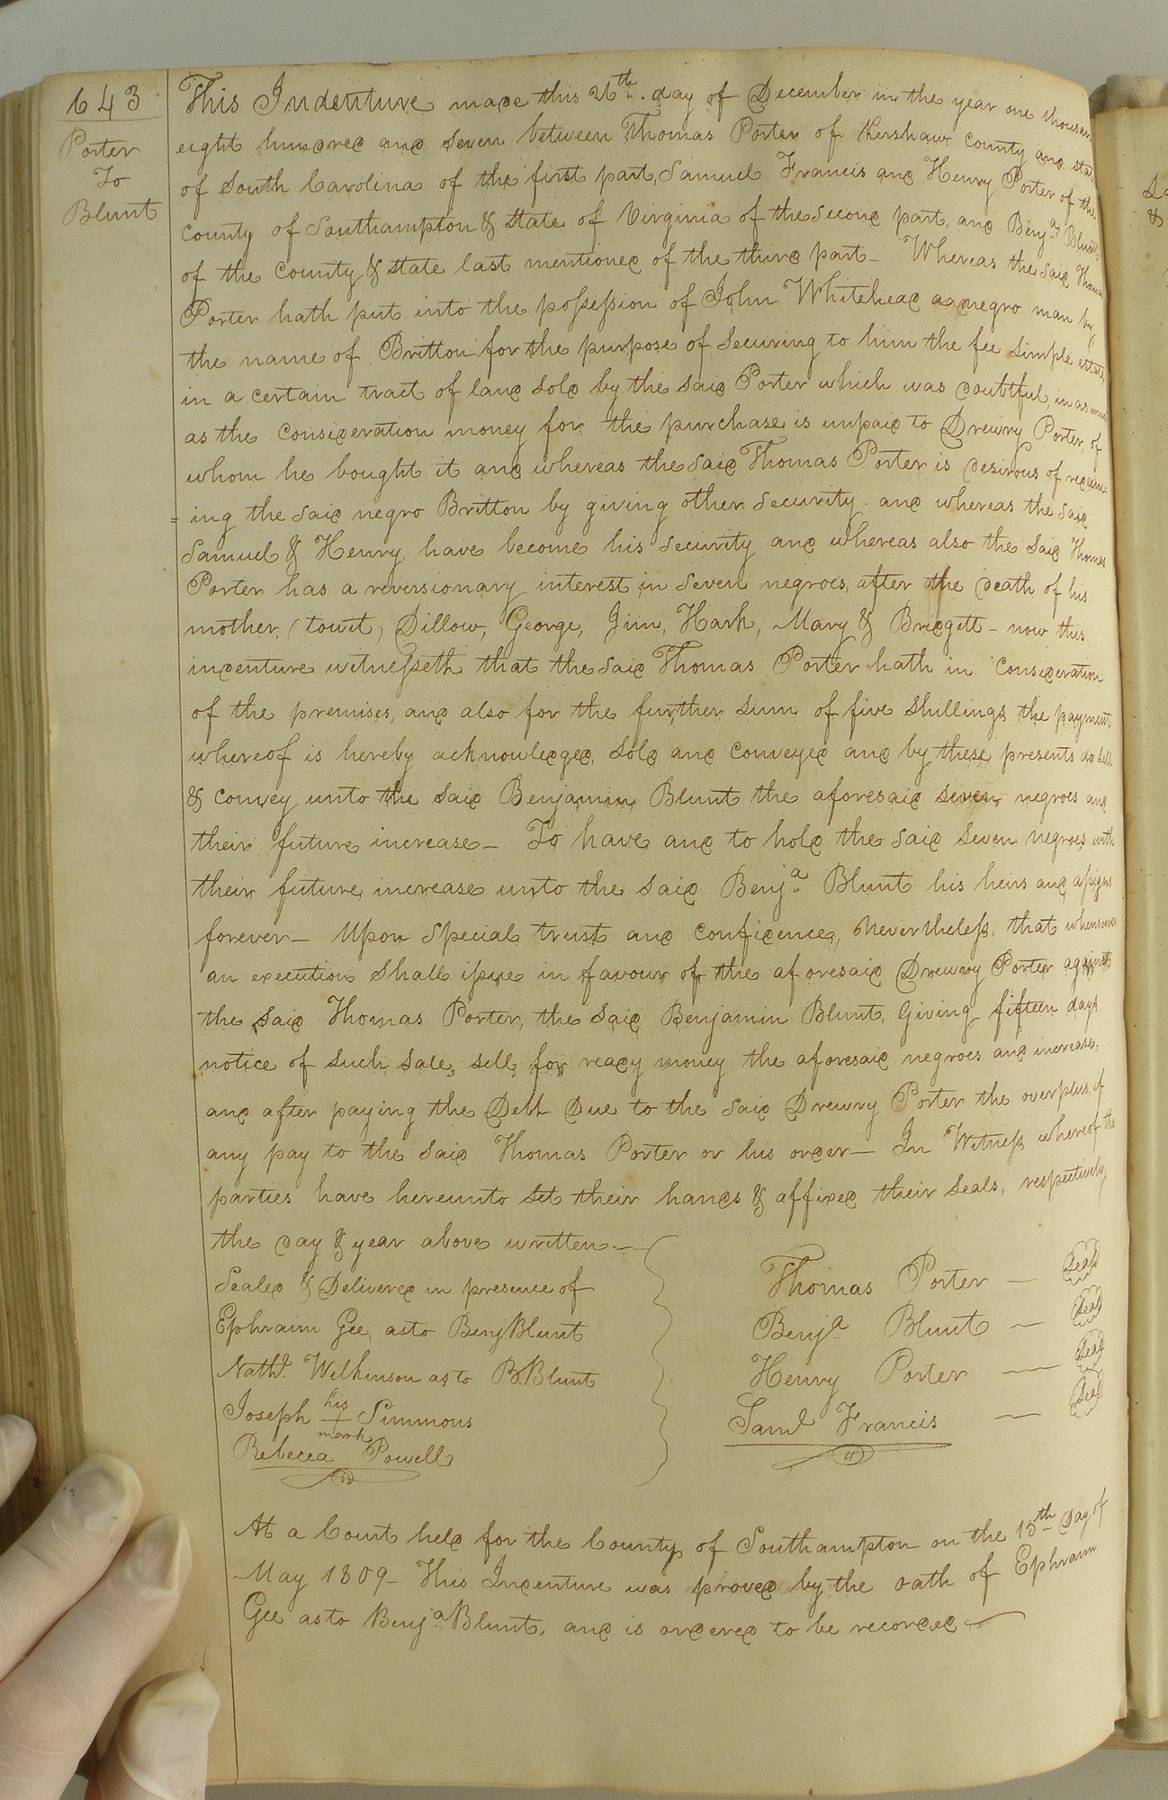 643
Porter
To
Blunt
This Indenture made this 26th. day of December in the year one thousan
eight hundred and seven between Thomas Porter of Kershaw County and stat
of South Carolina of the first part, Samuel Francis and Henry Porter of the
County of Southampton & state of Virginia of the second part, and Benja Blunt
of the County & state last mentioned of the third part – Whereas the said Thomas
Porter hath put into the possession of John Whitehead a negro man by
the name of Britton for the purpose of securing to him the fee simple estate
in a certain tract of land sold by the said Porter which was doubtful, in as much
as the consideration money for the purchase is unpaid to Drewry Porter, of
whom he bought it and whereas the said Thomas Porter is desirous of redeem
= ing the said negro Britton by giving other security and whereas the said
Samuel & Henry have become his security and whereas also the said Thomas
Porter has a reversionary interest in seven negroes, after the death of his
mother, (towit, Dillow, George, Jim, Hark, Mary & Bridgett – now this
indenture witnesseth that the said Thomas Porter hath in Consideration
of the premises, and also for the further sum of five Shillings the payment
whereof is hereby acknowledged, sold and conveyed and by these presents do sell
& convey unto the said Benjamin Blunt the aforesaid seven negroes and
their future increase – To have and to hold the said seven negroes with
their future increase unto the said Benja. Blunt his heirs and assigns
forever – Upon special trust and confidence, Nevertheless, that whensoever
an execution shall issue in favour of the aforesaid Drewry Porter against
the said Thomas Porter, the said Benjamin Blunt, Giving fifteen days
notice of such sale, sell, for ready money the aforesaid negroes and increase,
and after paying the Debt Due to the said Drewry Porter the overplus, if
any pay to the said Thomas Porter or his order – In Witness whereof the
parties have hereunto set their hands & affixed their seals, respectively
the day & year above written –
Sealed & Delivered in presence of
Ephraim Gee, as to Benj Blunt
Nathl. Wilkinson as to B. Blunt
Joseph his + mark Simmons
Rebecca Powell
Thomas Porter – Seal
Benja. Blunt – Seal
Henry Porter – Seal
Saml Francis – Seal
At a Court held for the County of Southampton on the 15th Day of
May 1809 – This Indenture was proved by the oath of Ephraim
Gee as to Benja. Blunt, and is ordered to be recorded –